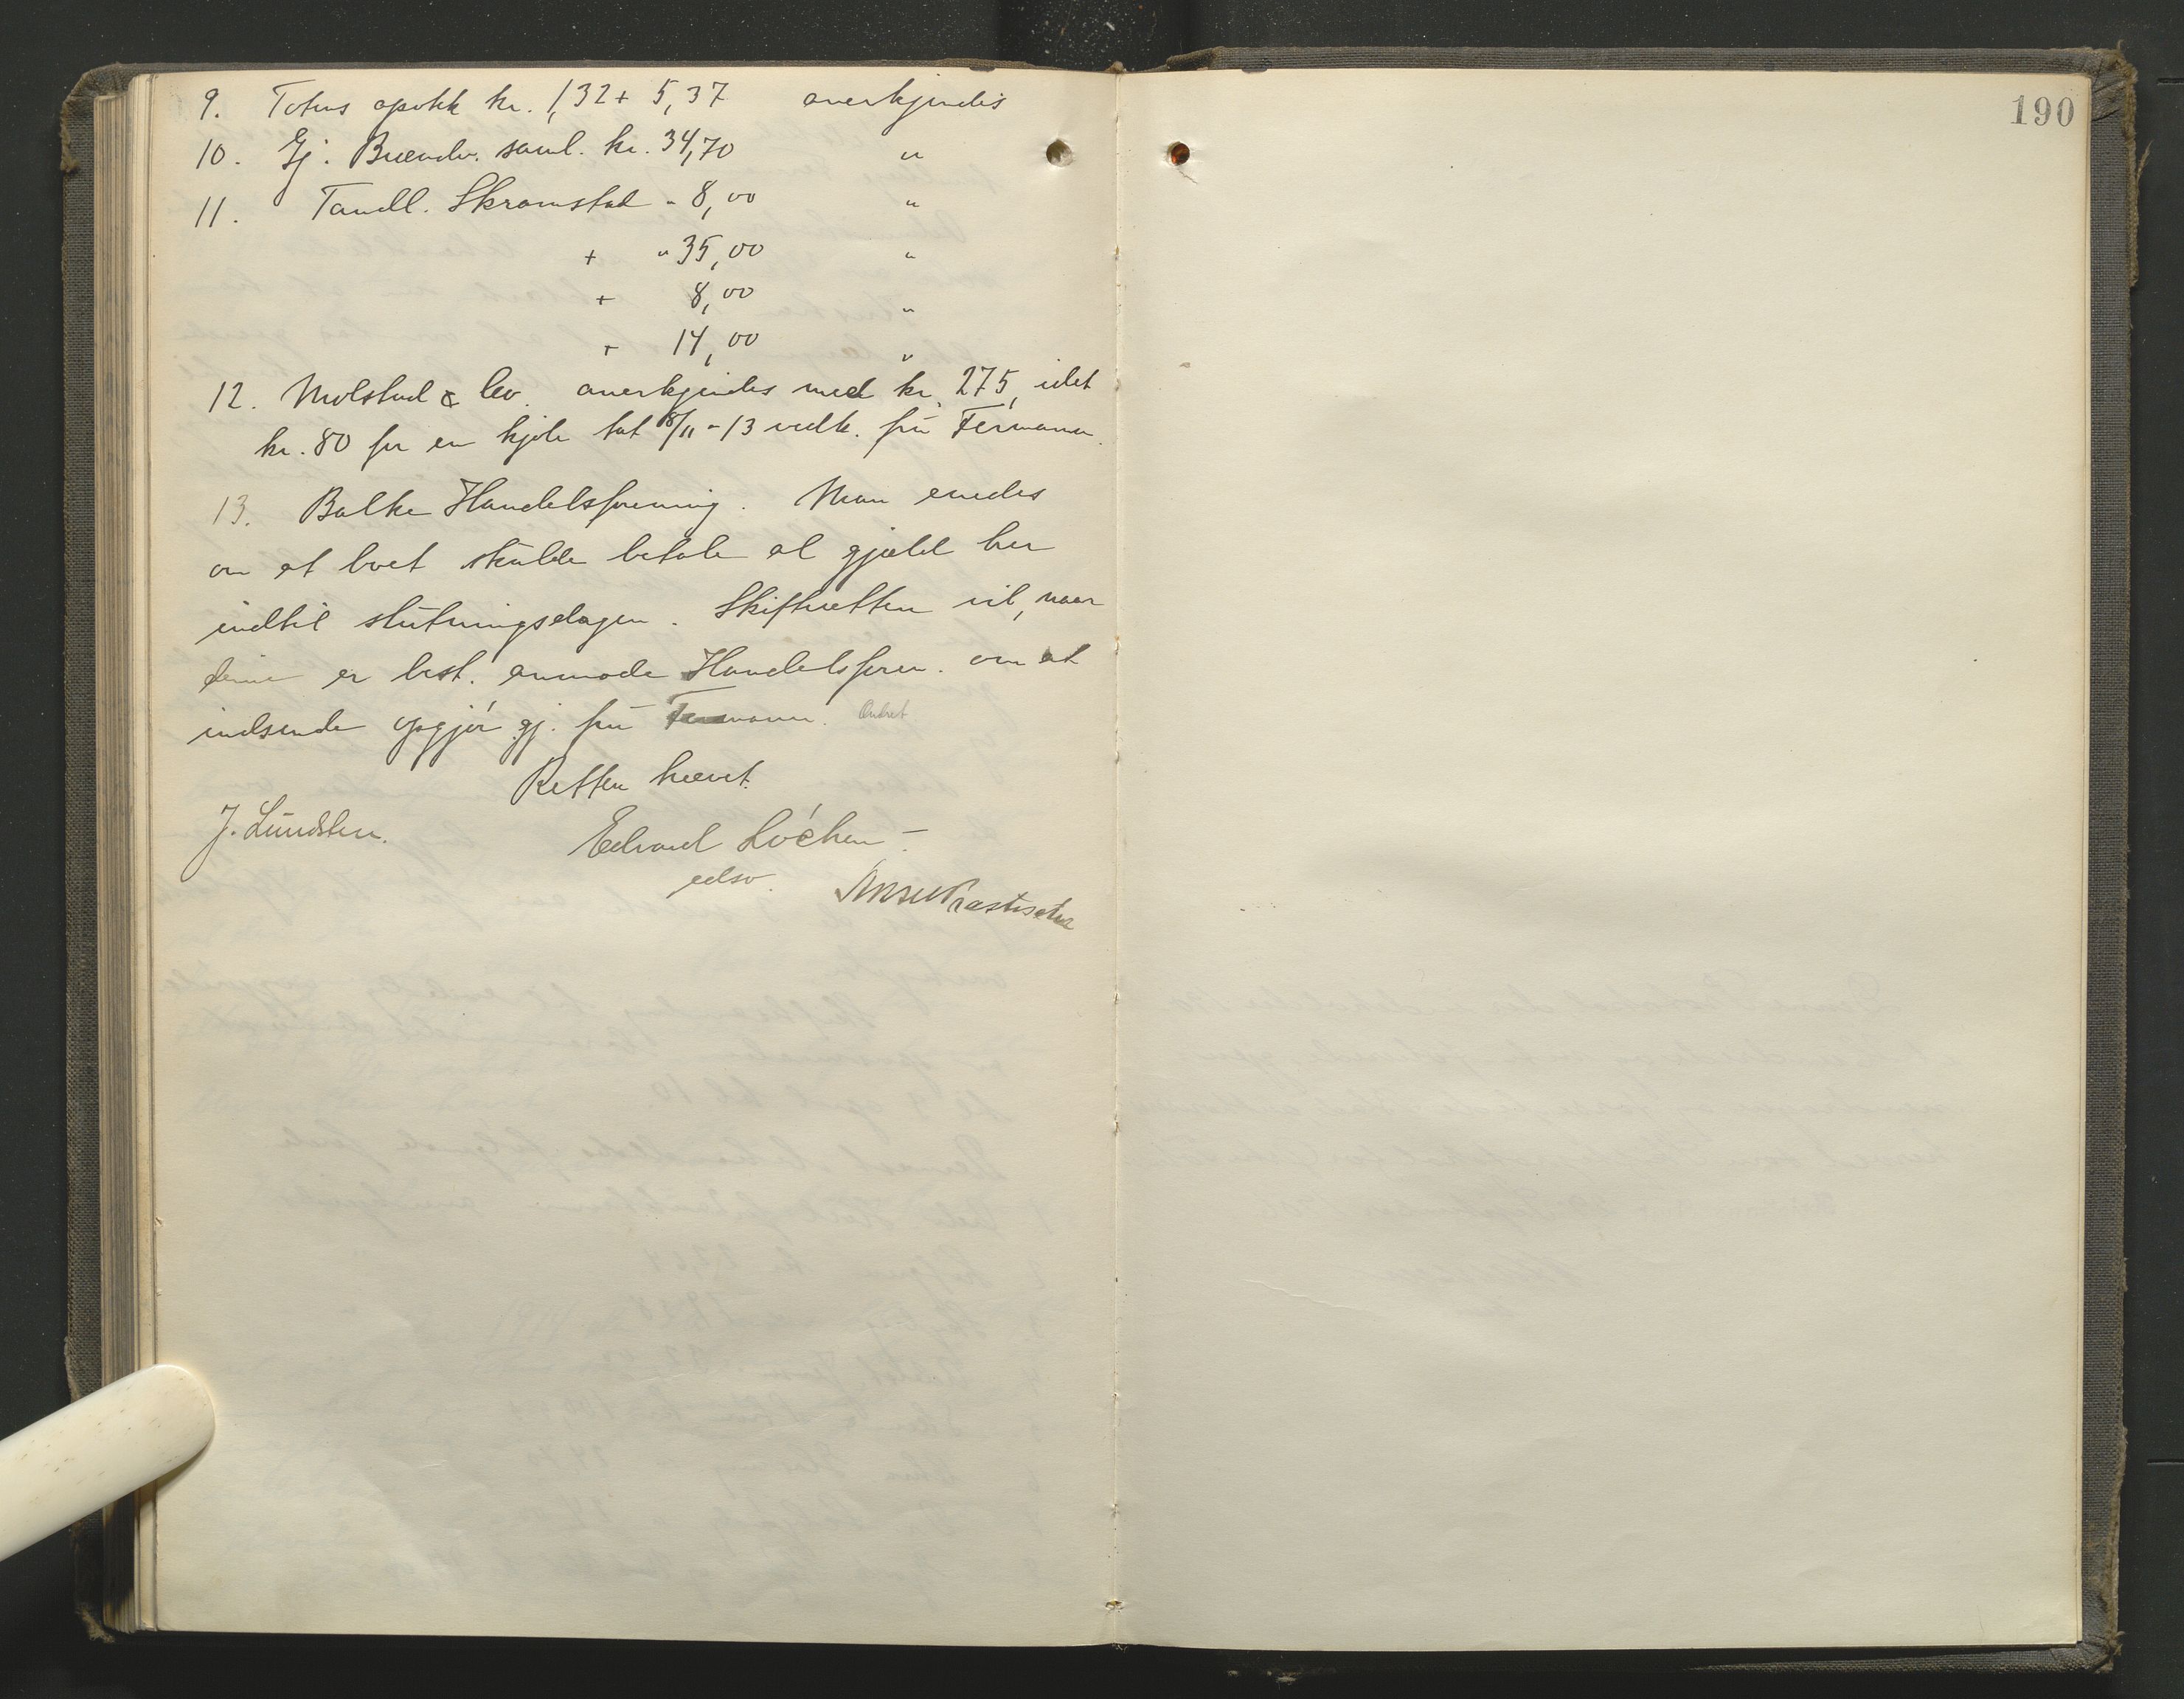 9. Totens apothk kr. 1,32 + 5,37 anerkjendes
10. Gj. Brændv. saml. kr. 34,70 "
11. Tandl. Skramstad - 8,00 "
+ " 35,00 "
+ 8,00 "
+ 14,00 "
12. Molstad & Co. anerkjendes med kr. 275, idet
kr. 80 for en kjole tat 18/11-13 vedk. frú Fermann.
13. Balke Handelsforening. Man enedes
om at boet skulde betale al gjæld her
indtil slutningsdagen. Skifteretten vil, naar
denne er best. anmode Handelsforen. om at
indsende opgjør gj. frú Fermann. Ordret
Retten hævet.
J. Lundsten. Edvard Lóchen -
edsv.
190